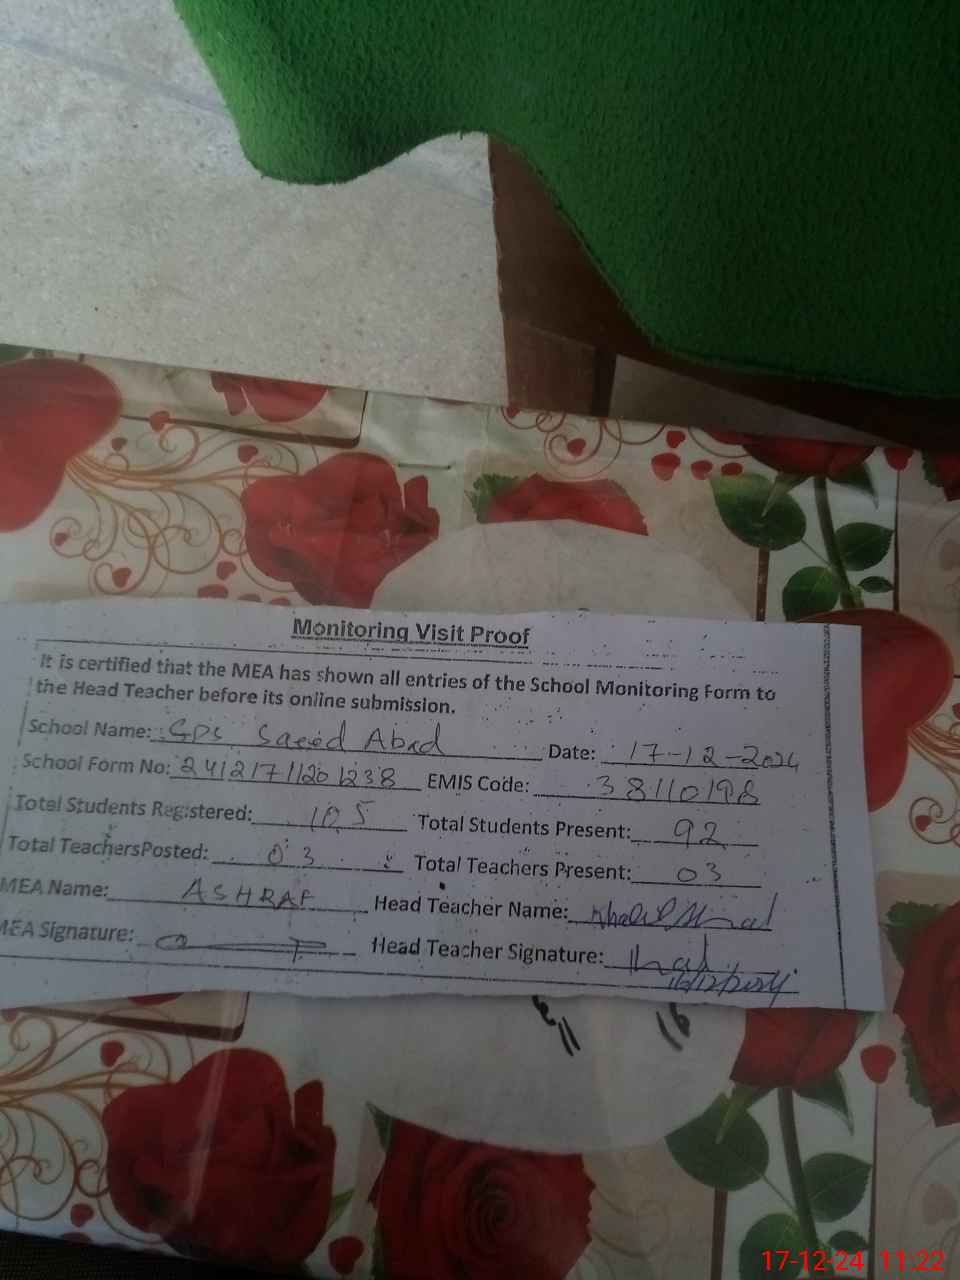 Monitoring Visit Proof
It is certified that the MEA has shown all entries of the School Monitoring Form to
the Head Teacher before its online submission.
School Name: GPS Saeed Abad Date: 17-12-2024
School Form No: 24121711201238 EMIS Code: 38110198
Total Students Registered: 105 Total Students Present: 92
Total TeachersPosted: 03 Total Teachers Present: 03
MEA Name: ASHRAF Head Teacher Name: Khalil
MEA Signature: Head Teacher Signature:
11 16
17-12-24 11:22